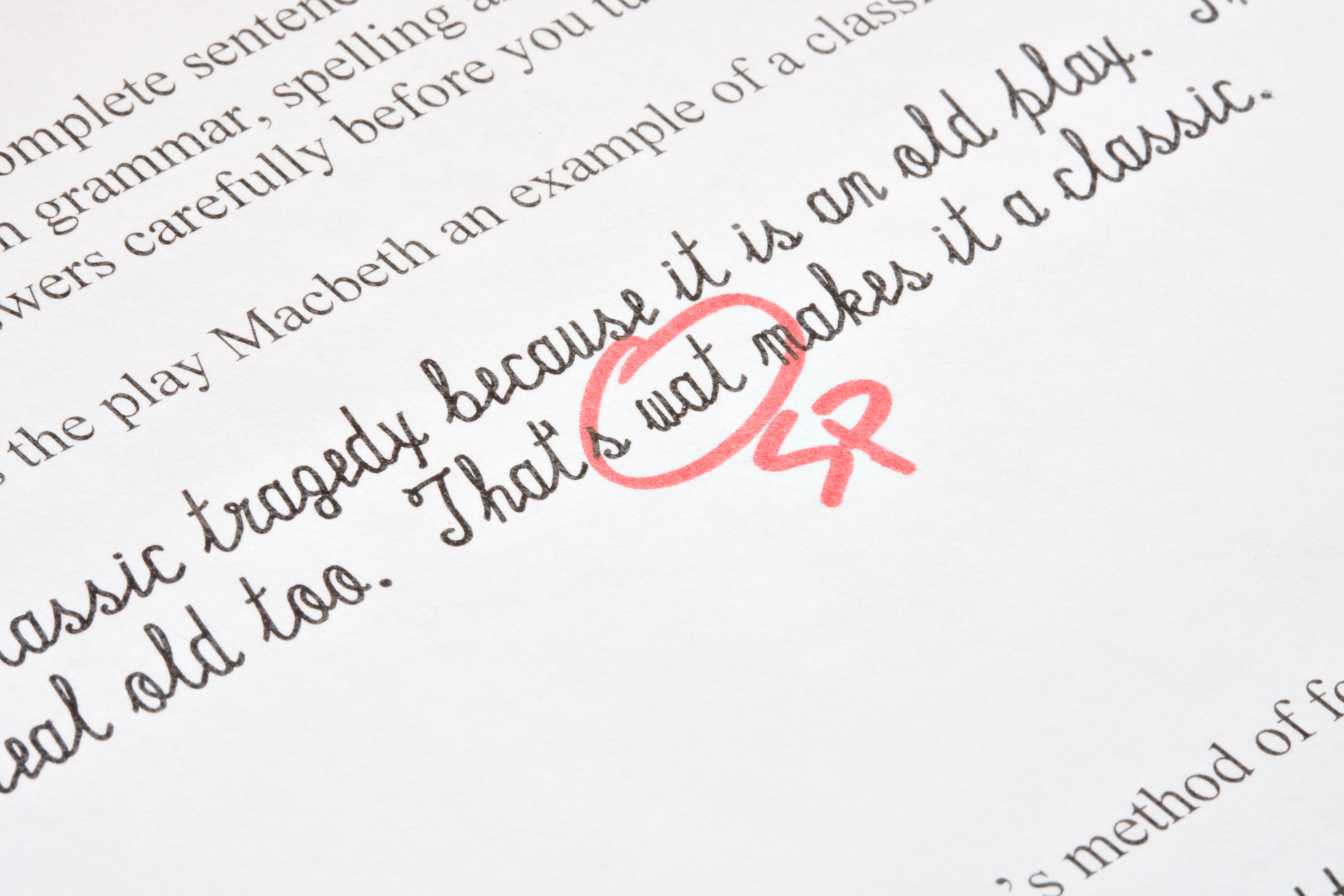 omplete senten
n grammar, spelling a
wers carefully before you tu
s the play Macbeth an example of a classi
lassic tragedy because it is an old play.
real old too. That's wat makes it a classic.
SP
's method of fo